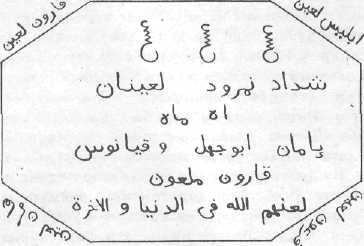 ابليس لعين
قارون لعين
شداد نمرود لعينان
اه ماه
يامان ابوجهل و قيانوس
قارون ملعون
لعنهم الله فى الدنيا و الاخرة
فرعون لعين
هامان لعين